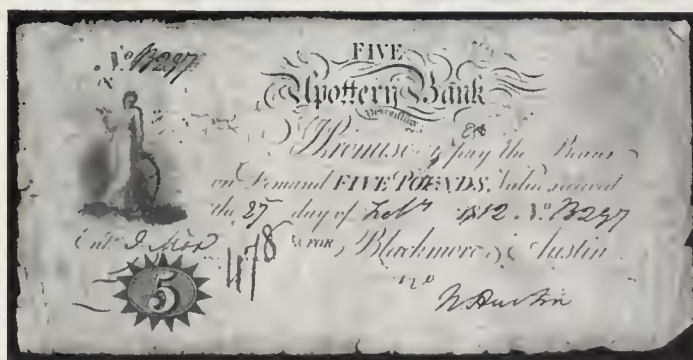 No. B297
FIVE
Upottery Bank
Devonshire
I Promise to pay the Bearer
on Demand FIVE POUNDS, Value received
the 27 day of Feby 1812. No. B297
Entd. J. Moss
FOR Blackmore & Austin
478
5
W Austin